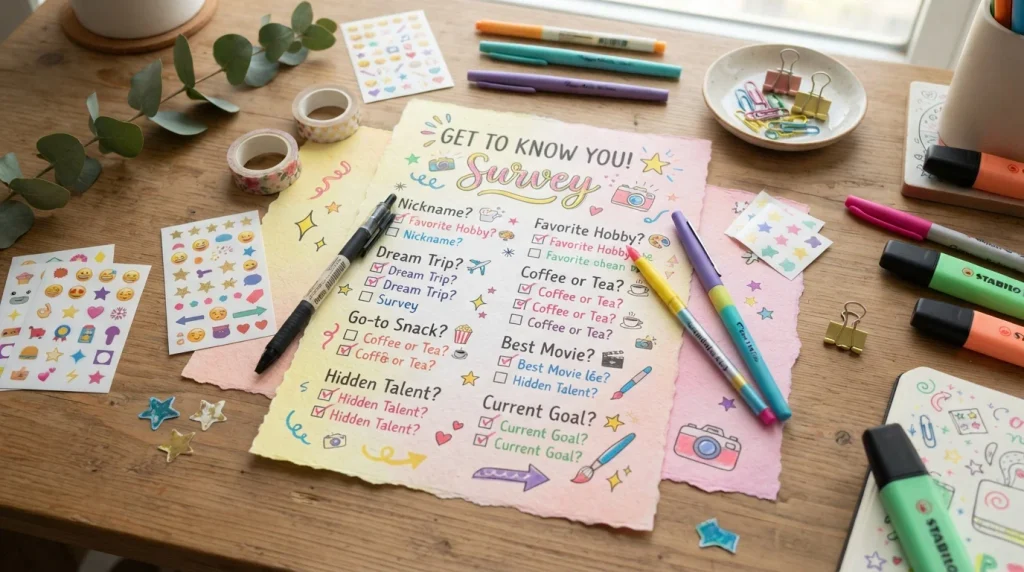 GET TO KNOW YOU!
Survey
Nickname?
Favorite Hobby?
Nickname?
Dream Trip?
Dream Trip?
Dream Trip?
Survey
Go-to Snack?
Coffee or Tea?
Coffee or Tea?
Hidden Talent?
Hidden Talent?
Hidden Talent?
Favorite Hobby?
Favorite Hobby
Favorite
Coffee or Tea?
Coffee or Tea?
Coffee or Tea?
Coffee or Tea?
Best Movie?
Best Movie
Hidden Talent?
Current Goal?
Current Goal?
Current Goal?
STABILO
STABILO